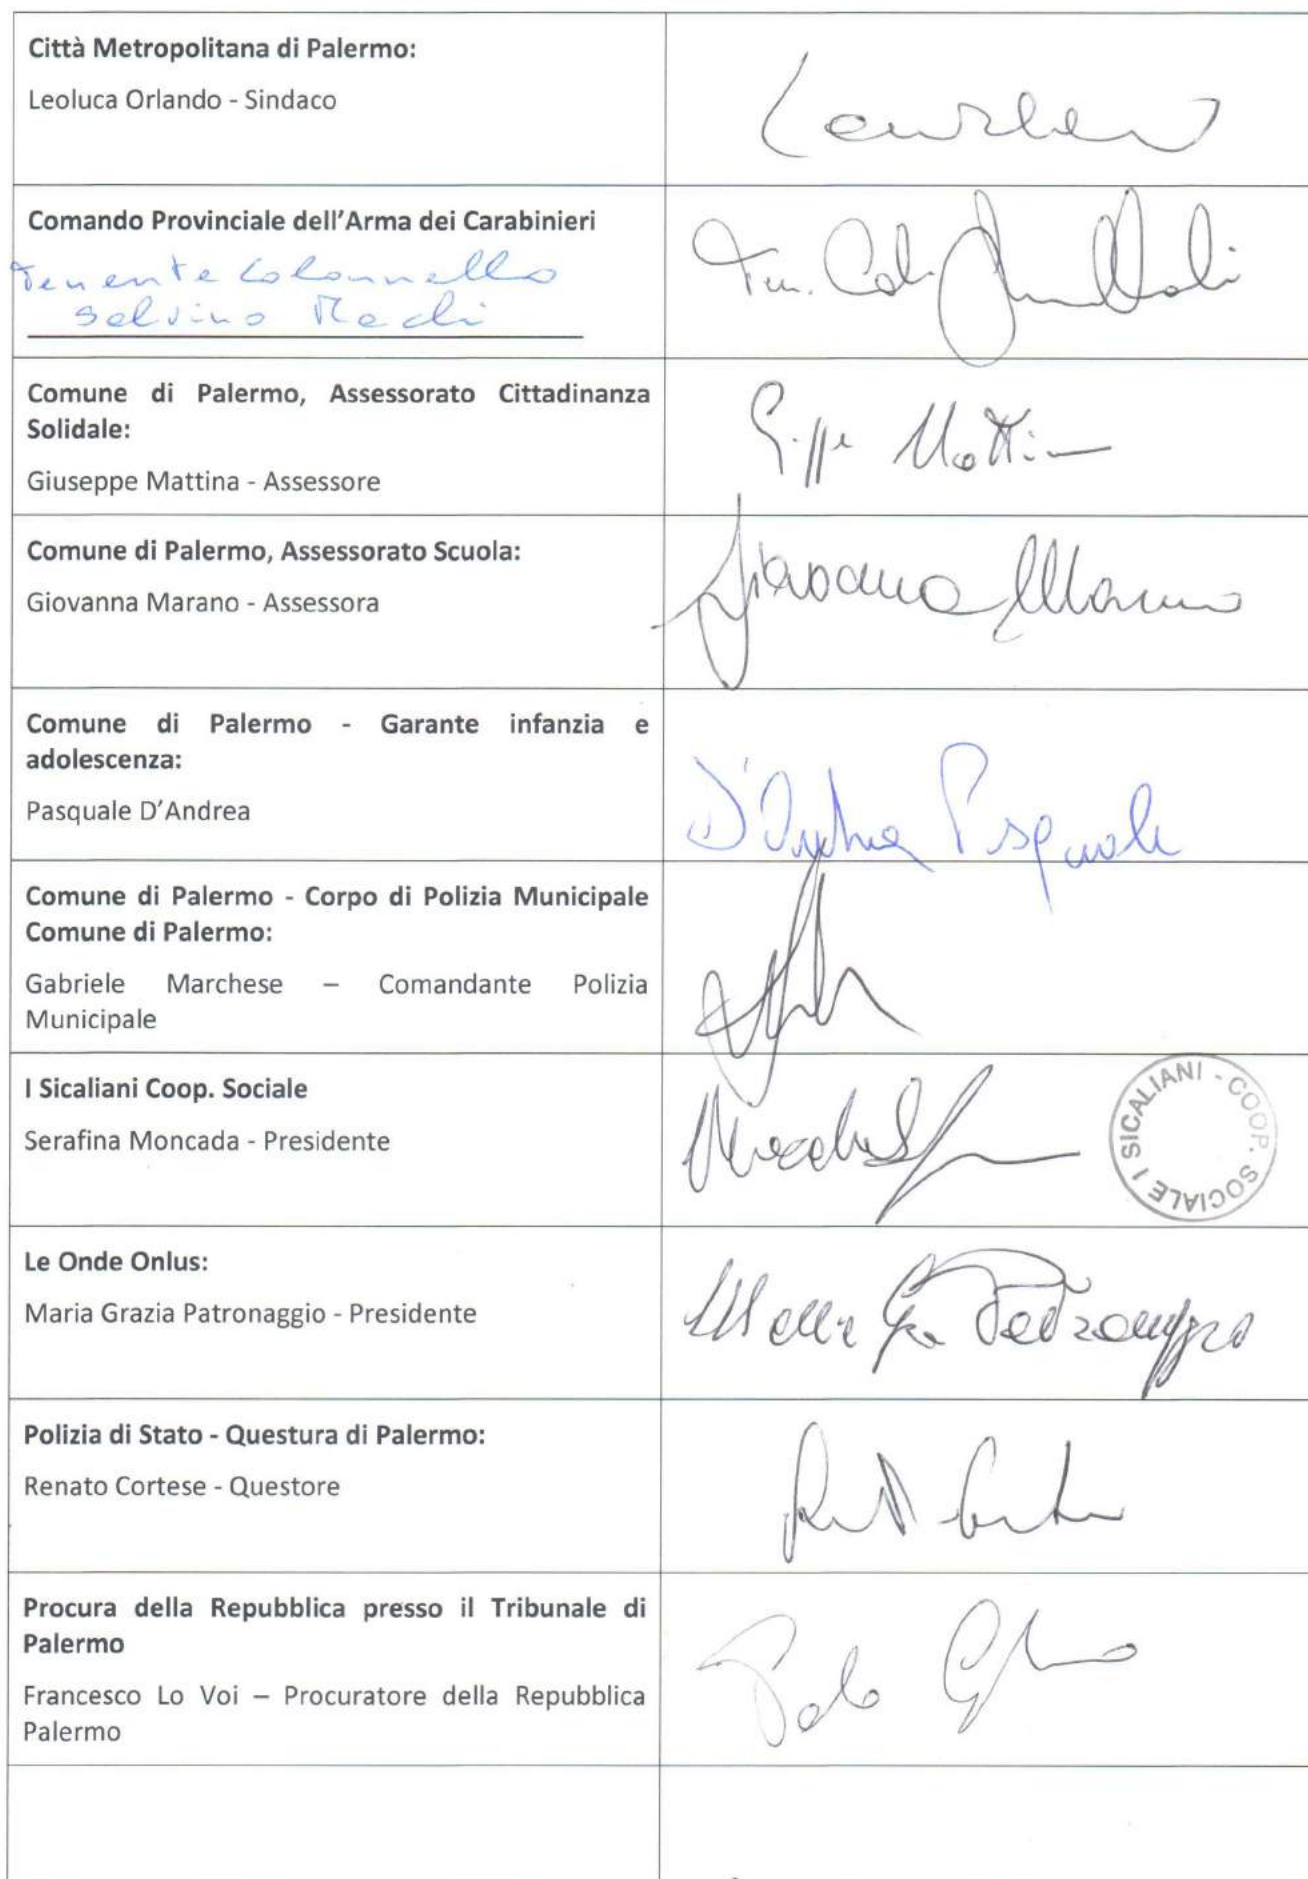 Città Metropolitana di Palermo:
Leoluca Orlando - Sindaco
Comando Provinciale dell'Arma dei Carabinieri
Tenente Colonnello
Salvino
Ten. Col.
Comune di Palermo, Assessorato Cittadinanza
Solidale:
Giuseppe Mattina - Assessore
Mattina
Comune di Palermo, Assessorato Scuola:
Giovanna Marano - Assessora
Giovanna Marano
Comune di Palermo - Garante infanzia e
adolescenza:
Pasquale D'Andrea
D'Andrea Pasquale
Comune di Palermo - Corpo di Polizia Municipale
Comune di Palermo:
Gabriele Marchese – Comandante Polizia
Municipale
I Sicaliani Coop. Sociale
Serafina Moncada - Presidente
I SICALIANI - COOP. SOCIALE
Le Onde Onlus:
Maria Grazia Patronaggio - Presidente
Polizia di Stato - Questura di Palermo:
Renato Cortese - Questore
Procura della Repubblica presso il Tribunale di
Palermo
Francesco Lo Voi – Procuratore della Repubblica
Palermo